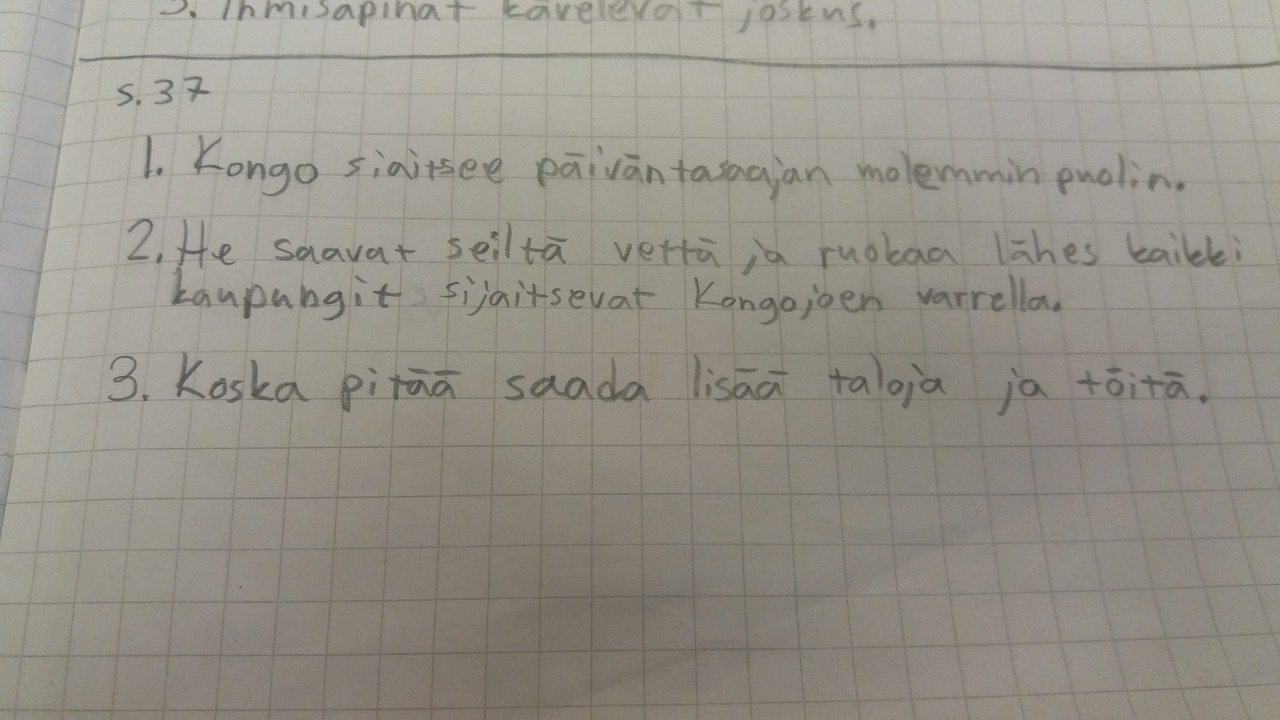 3. Ihmisapinat kävelevät joskus.
s. 37
1. Kongo siaitsee päiväntasaajan molemmin puolin.
2. He saavat seiltä vettä ja ruokaa lähes kaikki
kaupungit sijaitsevat Kongojoen varrella.
3. Koska pitää saada lisää taloja ja töitä.